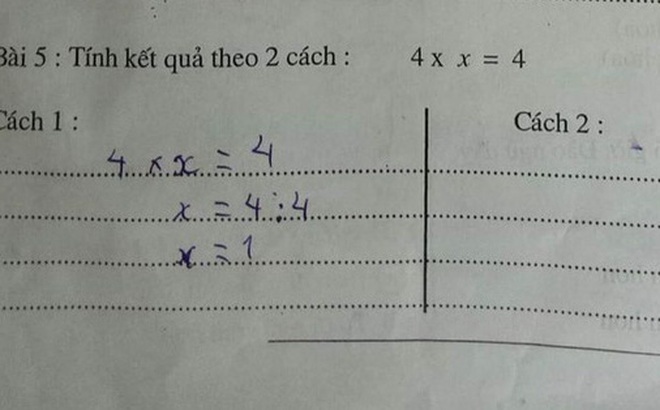 Bài 5 : Tính kết quả theo 2 cách : 4 x x = 4
Cách 1 :
Cách 2 :
4 x x = 4
x = 4 : 4
x = 1